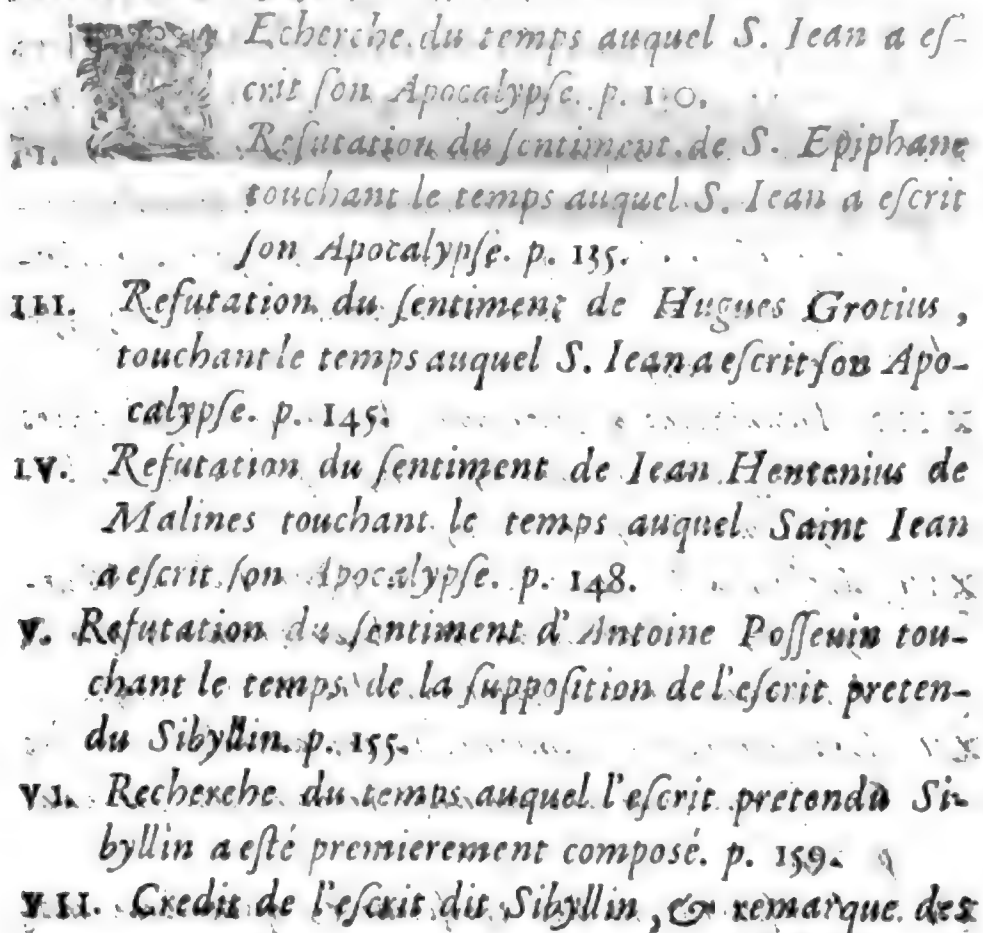 REcherche du temps auquel S. Iean a eſ-
crit ſon Apocalypſe. p.
II. Refutation du ſentiment de S. Epiphane
touchant le temps auquel S. Iean a eſcrit
ſon Apocalypſe. p. 135.
III. Refutation du ſentiment de Hugues Grotius,
touchant le temps auquel S. Iean a eſcrit ſon Apo-
calypſe. p. 145.
IV. Refutation du ſentiment de Iean Hentenius de
Malines touchant le temps auquel Saint Iean
a eſcrit ſon Apocalypſe. p. 148.
V. Refutation du ſentiment d'Antoine Poſſeuin tou-
chant le temps de la ſuppoſition de l'eſcrit preten-
du Sibyllin. p. 155.
VI. Recherche du temps auquel l'eſcrit pretendu Si-
byllin a eſté premierement composé. p. 159.
VII. Credit de l'eſcrit dit Sibyllin, & remarque des